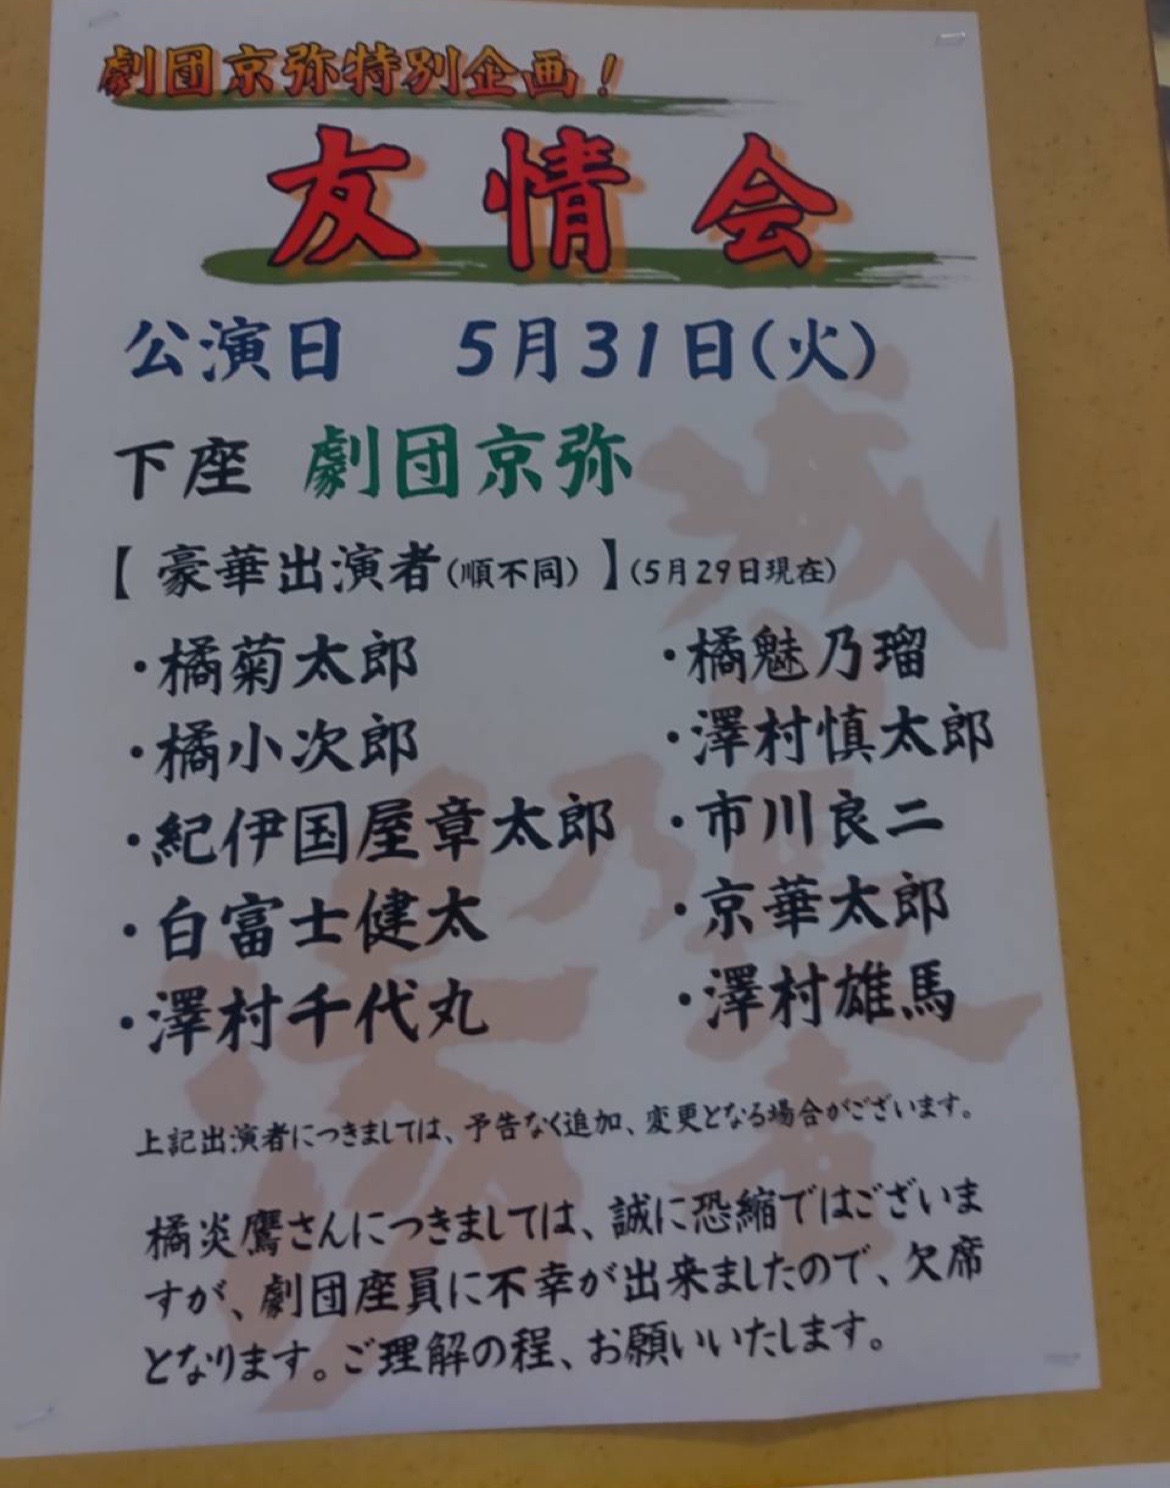 劇団京弥特別企画！
友情会
公演日 5月31日(火)
下座 劇団京弥
【豪華出演者(順不同)】(5月29日現在)
・橘菊太郎 ・橘魅乃瑠
・橘小次郎 ・澤村慎太郎
・紀伊国屋章太郎 ・市川良二
・白富士健太 ・京華太郎
・澤村千代丸 ・澤村雄馬
上記出演者につきましては、予告なく追加、変更となる場合がございます。
橘炎鷹さんにつきましては、誠に恐縮ではございま
すが、劇団座員に不幸が出来ましたので、欠席
となります。ご理解の程、お願いいたします。